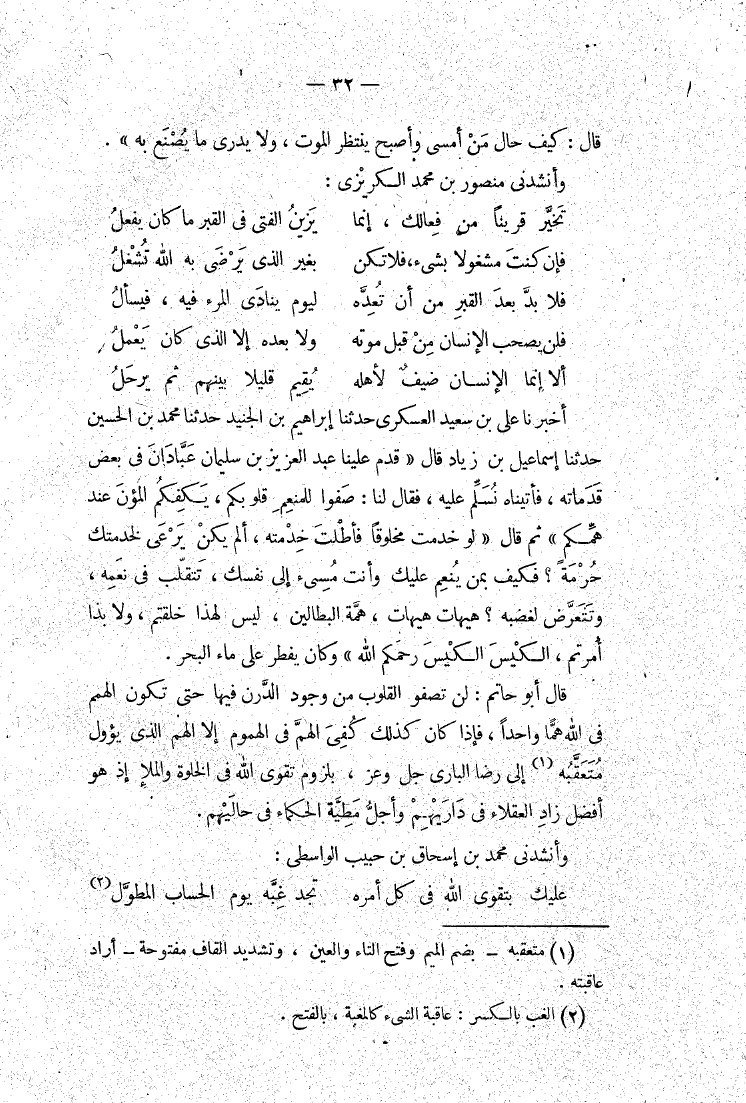 — ٣٢ —
قال : كيف حال مَنْ أمسى وأصبح ينتظر الموت ، ولا يدرى ما يُصْنَع به » .
وأنشدنى منصور بن محمد الكريْزى :
تَخيَّر قريناً من فِعالك ، إنما يَزينُ الفتى فى القبر ما كان يفعلُ
فإن كنتَ مشغولا بشىء،فلا تكن بغير الذى يَرْضَى به الله تُشْغلُ
فلا بدَّ بعدَ القبرِ من أن تُعِدَّه ليوم ينادَى المرء فيه ، فيسألُ
فلن يصحب الإنسان مِنْ قبل موته ولا بعده إلا الذى كان يَعْملُ
ألا إنما الإنسان ضيفٌ لأهله يُقيم قليلا بينهم ثم يرحَلُ
أخبرنا على بن سعيد العسكرى حدثنا إبراهيم بن الجنيد حدثنا محمد بن الحسين
حدثنا إسماعيل بن زياد قال « قدم علينا عبد العزيز بن سليمان عَبَّادَانَ فى بعض
قَدَماته ، فأتيناه نُسَلِّم عليه ، فقال لنا : صَفوا للمنعِمِ قلوبكم ، يَكفِكمُ المؤنَ عند
همِّكم » ثم قال « لو خدمت مخلوقاً فأطْلتَ خِدْمته ، ألم يكنْ يَرْعَى لخدمتك
حُرْمَةً ؟ فكيف بمن يُنعِم عليك وأنت مُسِىء إلى نفسك ، تَتقلَّب فى نعَمِه ،
وتَتَعرَّض لغضبه ؟ هيهات هيهات ، همَّة البطالين ، ليس لهذا خلقتم ، ولا بذا
أمرتم ، الكَيْسَ الكَيْسَ رحمكم الله » وكان يفطر على ماء البحر .
قال أبو حاتم : لن تصفو القلوب من وجود الدَّرن فيها حتى تكون الهمم
فى الله همًّا واحداً ، فإذا كان كذلك كُفِىَ الهمَّ فى الهموم إلا الهم الذى يؤول
مُتَعَقَّبُه (١) إلى رضا البارى جل وعز ، بلزوم تقوى الله فى الخلوة والملإ إذ هو
أفضل زادِ العقلاء فى دَارَيْهِمْ وأجلُّ مَطِيَّة الحكماء فى حالَيْهم .
وأنشدنى محمد بن إسحاق بن حبيب الواسطى :
عليك بتقوى الله فى كل أمره تجد غِبَّه يوم الحساب المطوَّل(٢)
(١) متعقبه – بضم الميم وفتح التاء والعين ، وتشديد القاف مفتوحة – أراد
عاقبته .
(٢) الغب بالكسر : عاقبة الشىء كالمغبة ، بالفتح .